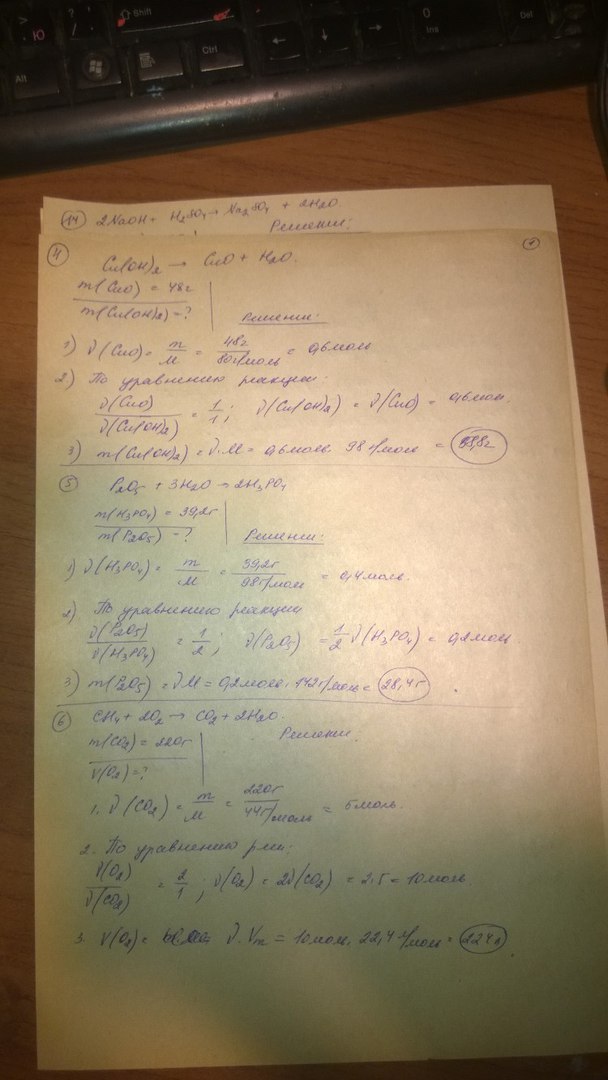 Shift
>
.
Ю
?
/
Alt
Ctrl
←
↓
→
0
Ins
Del
14 2NaOH + H2SO4 → Na2SO4 + 2H2O
Решение:
1
4
Cu(OH)2 → CuO + H2O.
m(CuO) = 48г
m(Cu(OH)2) = ?
Решение:
1) ν(CuO) = m/M = 48г/80г/моль = 0,6моль
2) По уравнению реакции
ν(CuO)/ν(Cu(OH)2) = 1/1; ν(Cu(OH)2) = ν(CuO) = 0,6моль.
3) m(Cu(OH)2) = ν·M = 0,6моль · 98г/моль = 58,8г
5 P2O5 + 3H2O → 2H3PO4
m(H3PO4) = 39,2г
m(P2O5) = ?
Решение:
1) ν(H3PO4) = m/M = 39,2г/98г/моль = 0,4моль.
2) По уравнению реакции
ν(P2O5)/ν(H3PO4) = 1/2; ν(P2O5) = 1/2 ν(H3PO4) = 0,2моль
3) m(P2O5) = νM = 0,2моль · 142г/моль = 28,4г.
6 CH4 + 2O2 → CO2 + 2H2O.
m(CO2) = 220г
V(O2) = ?
Решение
1. ν(CO2) = m/M = 220г/44г/моль = 5моль.
2. По уравнению р-ии:
ν(O2)/ν(CO2) = 2/1; ν(O2) = 2ν(CO2) = 2·5 = 10моль
3. V(O2) = ν·Vm = 10моль · 22,4л/моль = 224л.